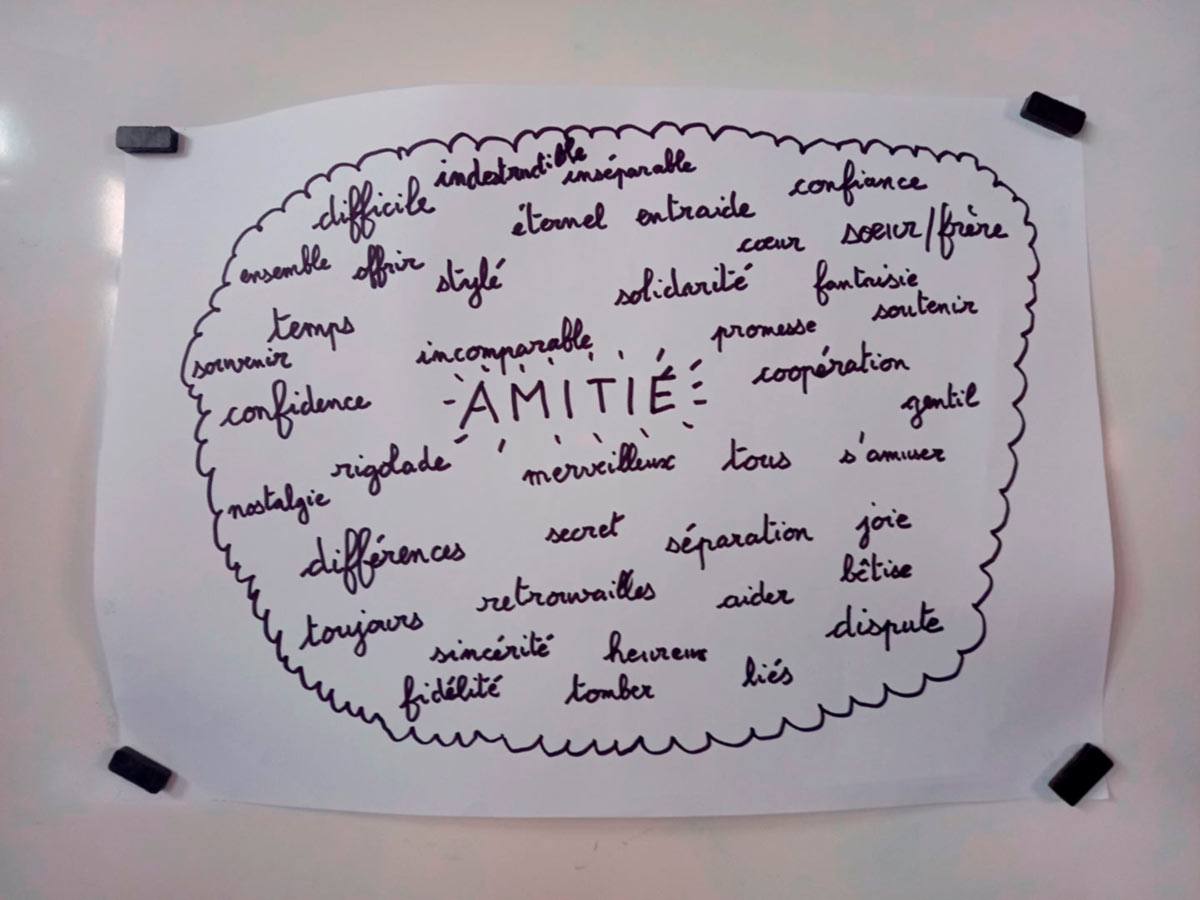 indestructible
inséparable
difficile
confiance
éternel
entraide
cœur
soeur/frère
ensemble
offrir
stylé
solidarité
fantaisie
soutenir
temps
souvenir
incomparable
promesse
coopération
confidence
AMITIÉ
gentil
rigolade
merveilleux
tous
s'amuser
nostalgie
différences
secret
séparation
joie
bêtise
retrouvailles
aider
toujours
dispute
sincérité
heureux
fidélité
tomber
liés